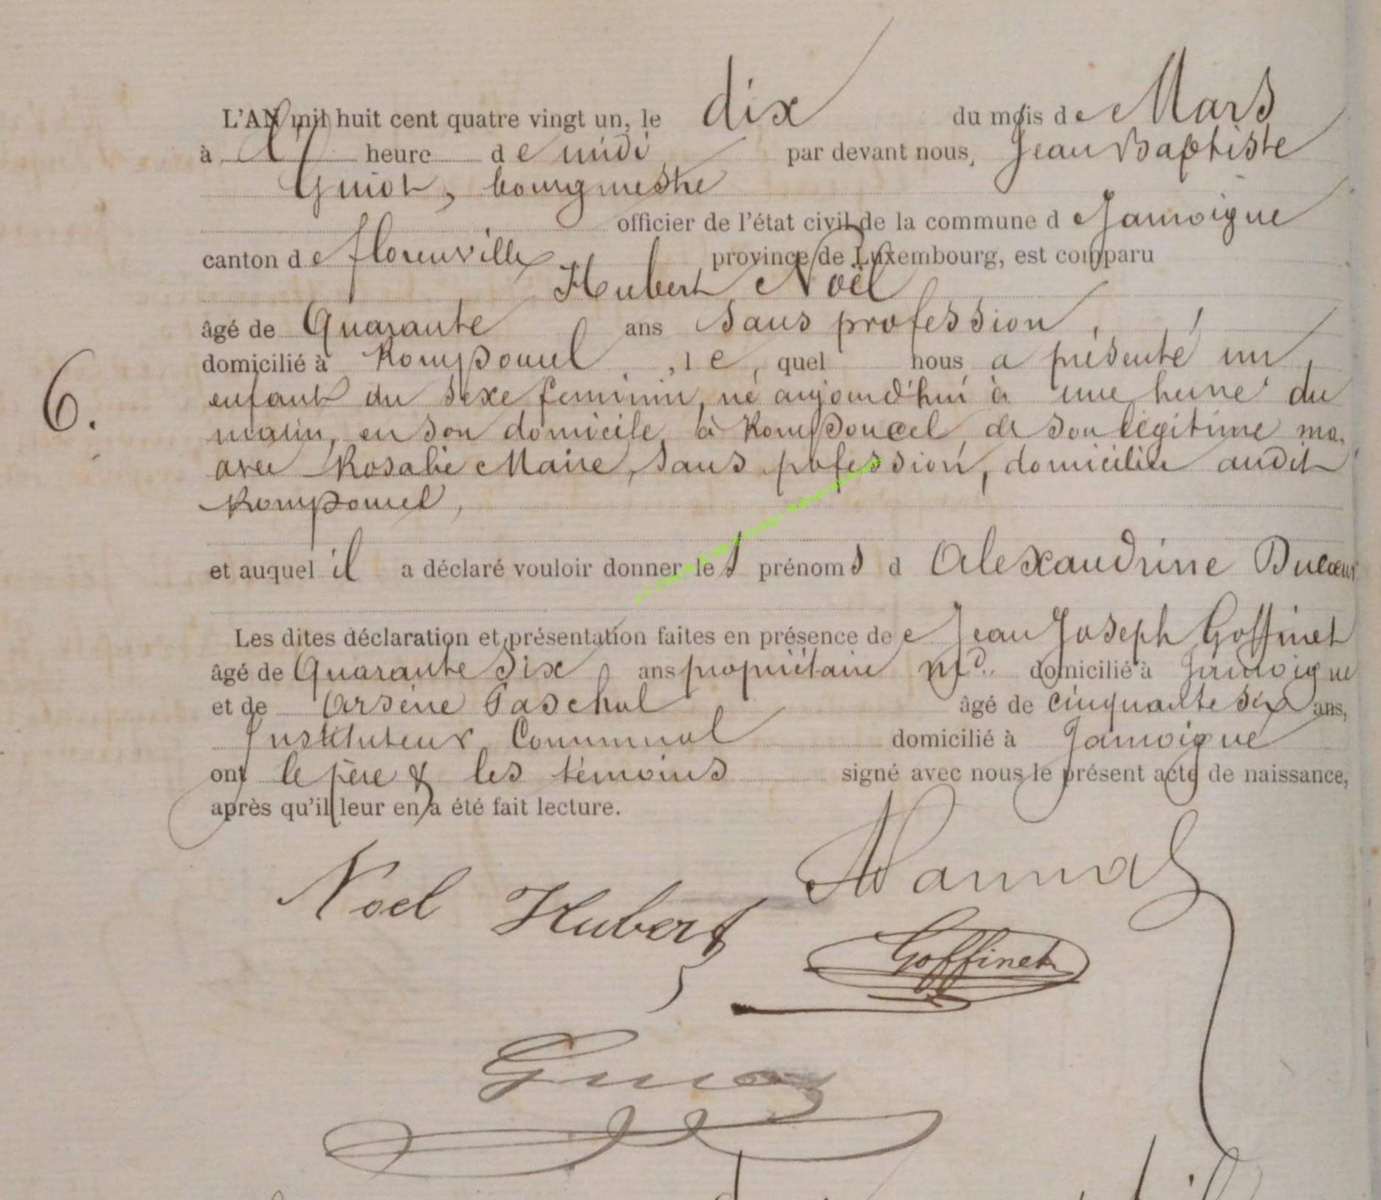 L'AN mil huit cent quatre vingt un, le dix du mois de Mars
à heure de midi par devant nous, Jean Baptiste
Guiot, bourgmestre
officier de l'état civil de la commune de Jamoigne
canton de florenville province de Luxembourg, est comparu
Hubert Noël
âgé de Quarante ans sans profession,
domicilié à , le quel nous a présenté un
6. enfant du sexe feminin, né aujourd'hui à une heure du
matin, en son domicile, à de son légitime ma.
avec Rosalie Maire, sans profession, domiciliée audit

et auquel il a déclaré vouloir donner les prénoms d Alexandrine
Les dites déclaration et présentation faites en présence de e Jean Joseph Goffinet
âgé de Quarante Six ans propriétaire md. domicilié à Jamoigne
et de Arsène Paschal âgé de cinquante six ans,
Instituteur Communal domicilié à Jamoigne
ont le père & les témoins signé avec nous le présent acte de naissance,
après qu'il leur en a été fait lecture.
Noel Hubert
Goffinet